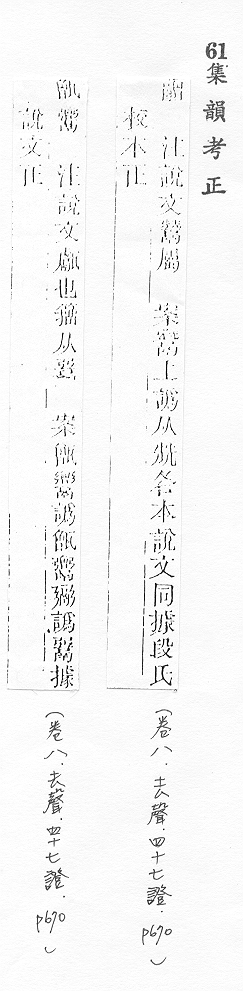 61集韻考正
注說文鬵屬 案鬵上譌从兟各本說文同據段氏
校本正
(卷八.去聲.四十七證.p670)
注說文甗也籒从 案甑 譌 譌 據
說文正
(卷八.去聲.四十七證.p670)